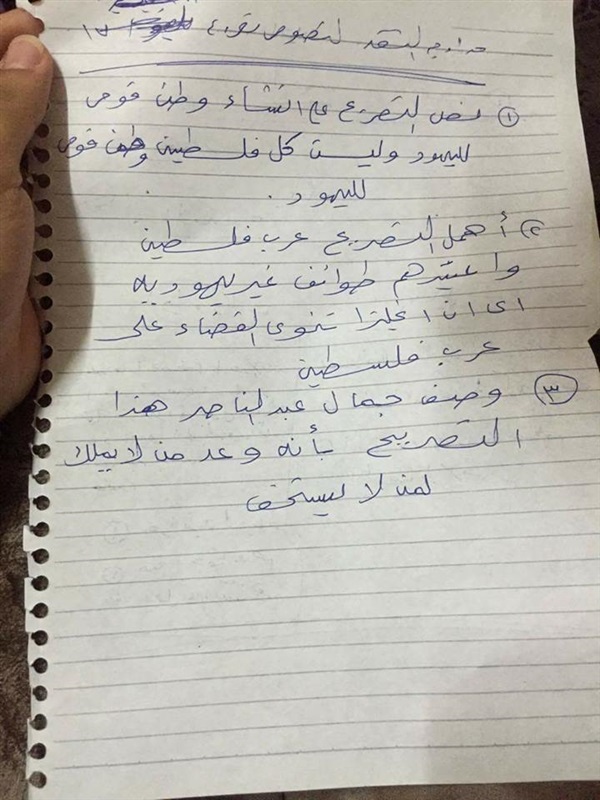 النقد لنصوص
① نص التصريح على انشاء وطن قومى
لليهود وليست كل فلسطين وطن قومى
لليهود.
② أهمل التصريح عرب فلسطين
واعتبرهم طوائف غير يهودية
اى ان انجلترا تنوى القضاء على
عرب فلسطين
③ وصف جمال عبد الناصر هذا
التصريح بأنه وعد من لا يملك
لمن لا يستحق